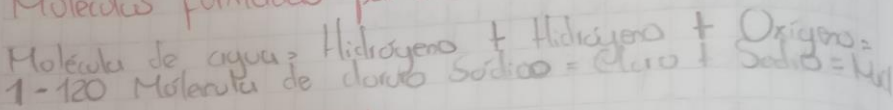 Moleculas
Molécula de agua: Hidrógeno + Hidrógeno + Oxígeno =
1-120 Molecula de cloruro Sódico = Cloro + Sodio =